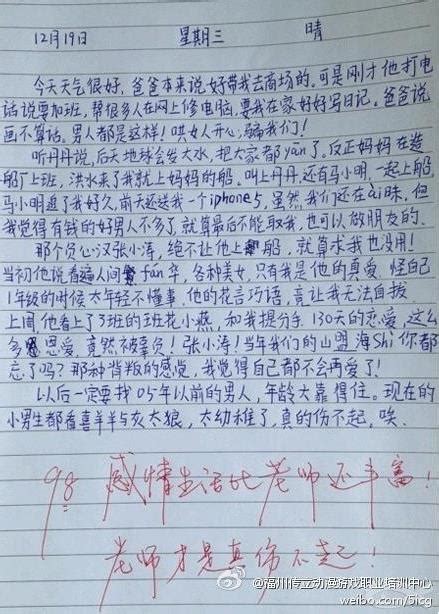 12月19日 星期三 晴
今天天气很好,爸爸本来说好带我去商场的。可是刚才他打电
话说要加班,帮很多人在网上修电脑,要我在家好好写日记。爸爸说
画不算话。男人都是这样!哄女人开心,骗我们!
听丹丹说,后天地球会发大水,把大家都yān了。反正妈妈在造
船厂上班,洪水来了我就上妈妈的船。叫上丹丹还有马小明,一起上船,
马小明追了我好久,前天还送我一个iphone5,虽然我们还在ài昧,但
我觉得有钱的好男人不多了,就算最后不能取我,也可以做朋友的。
那个负心汉张小涛,绝不让他上船,就算求我也没用!
当初他说看遍人间fán华,各种美女,只有我是他的真爱。怪自己
1年级的时候太年轻不懂事,他的花言巧语,竟让我无法自拔。
上周,他看上了3班的班花小燕,和我提分手。130天的恋爱,这么
多恩爱,竟然被辜负!张小涛!当年我们的山盟海Shì你都
忘了吗?那种背叛的感觉,我觉得自己都不会再爱了!
以后一定要找05年以前的男人,年龄大靠得住。现在的
小男生都看喜羊羊与灰太狼,太幼稚了,真的伤不起,唉。
98 感情生活比老师还丰富!
老师才是真伤不起!
@福州传立动漫游戏职业培训中心
weibo.com/5icg